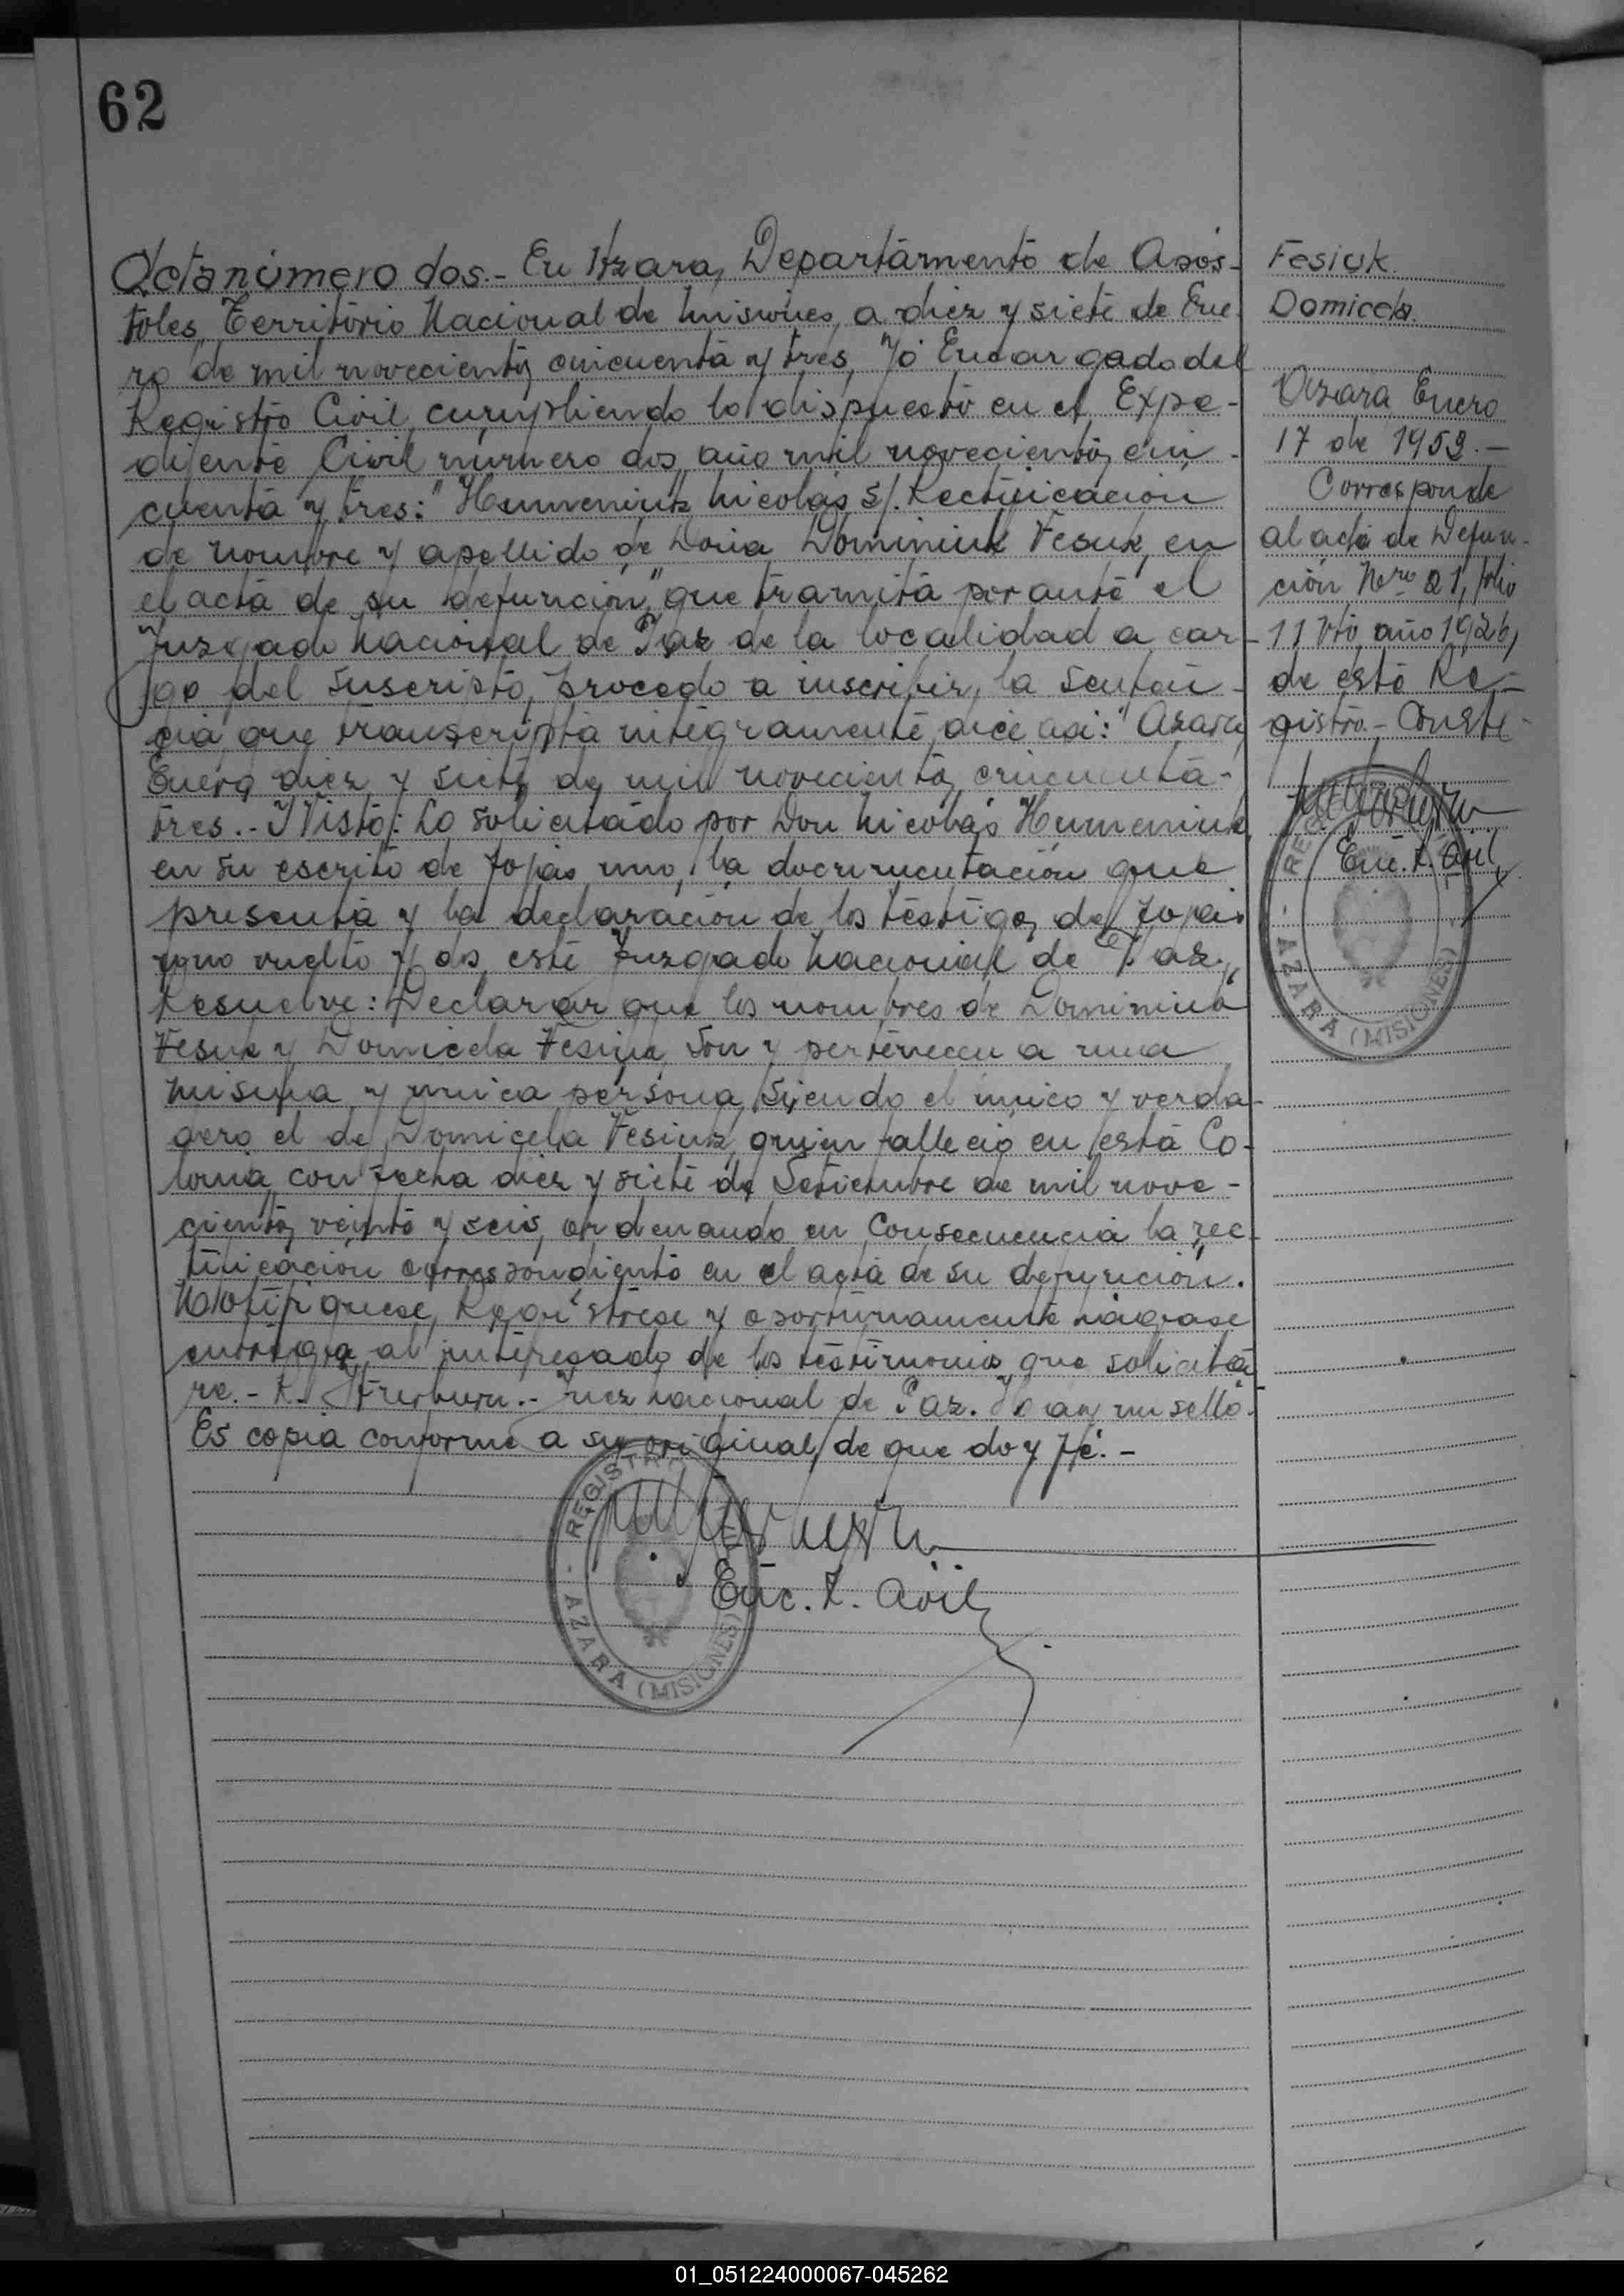 62
Acta número dos.- En Azara, Departamento de Após-
toles, Território Nacional de Misiones, a diez y siete de Ene-
ro de mil novecientos cincuenta y tres, Yó Encargado del
Registro Civil, cumpliendo lo dispuesto en el Expe-
diente Civil número dos, año mil novecientos cin-
cuenta y tres: "Humeniuk Nicolás S/. Rectificación
de nombre y apellido de Doña Dominiuk Fesuk, en
el acta de su defunción," que tramita por ante el
Juzgado Nacional de Paz de la localidad a car-
go del suscripto, procedo a inscribir, la senten-
cia, que transcripta integramente, dice asi: "Azara,
Enero, diez y siete de mil novecientos cincuenta-
tres.- Y Visto: Lo solicitado por Don Nicolás Humeniuk,
en su escrito de fojas uno, la documentación que
presenta y la declaración de los testigos de fojas
uno vuelto y dos, este Juzgado Nacional de Paz,
Resuelve: Declarar que los nombres de
Fesuk y Domicela Fesiuk, son y pertenecen a una
misma y unica persona, siendo el unico y verda-
dero el de Domicela Fesiuk, quien falleció en esta Co-
lonia, con fecha diez y siete de Setiembre de mil nove-
cientos veinte y seis, ordenando en consecuencia la rec-
tificación correspondiente en el acta de su defunción.
Notifiquese, Registrese y oportunamente hágase
entrega al interesado de los testimonios que solicita-
re.- Juez Nacional de Paz. Hay un sello.
Es copia conforme a su original, de que doy fé.-
REGISTRO
AZARA (MISIONES)
Enc. R. Civil
Fesiuk
Domicela.
Azara Enero
17 de 1953.-
Corresponde
al acta de Defun-
ción Nro 21, folio
11 vto, año 1926,
de este Re-
gistro.- Conste-
Enc. R. Civil
AZARA (MISIONES)
01_051224000067-045262